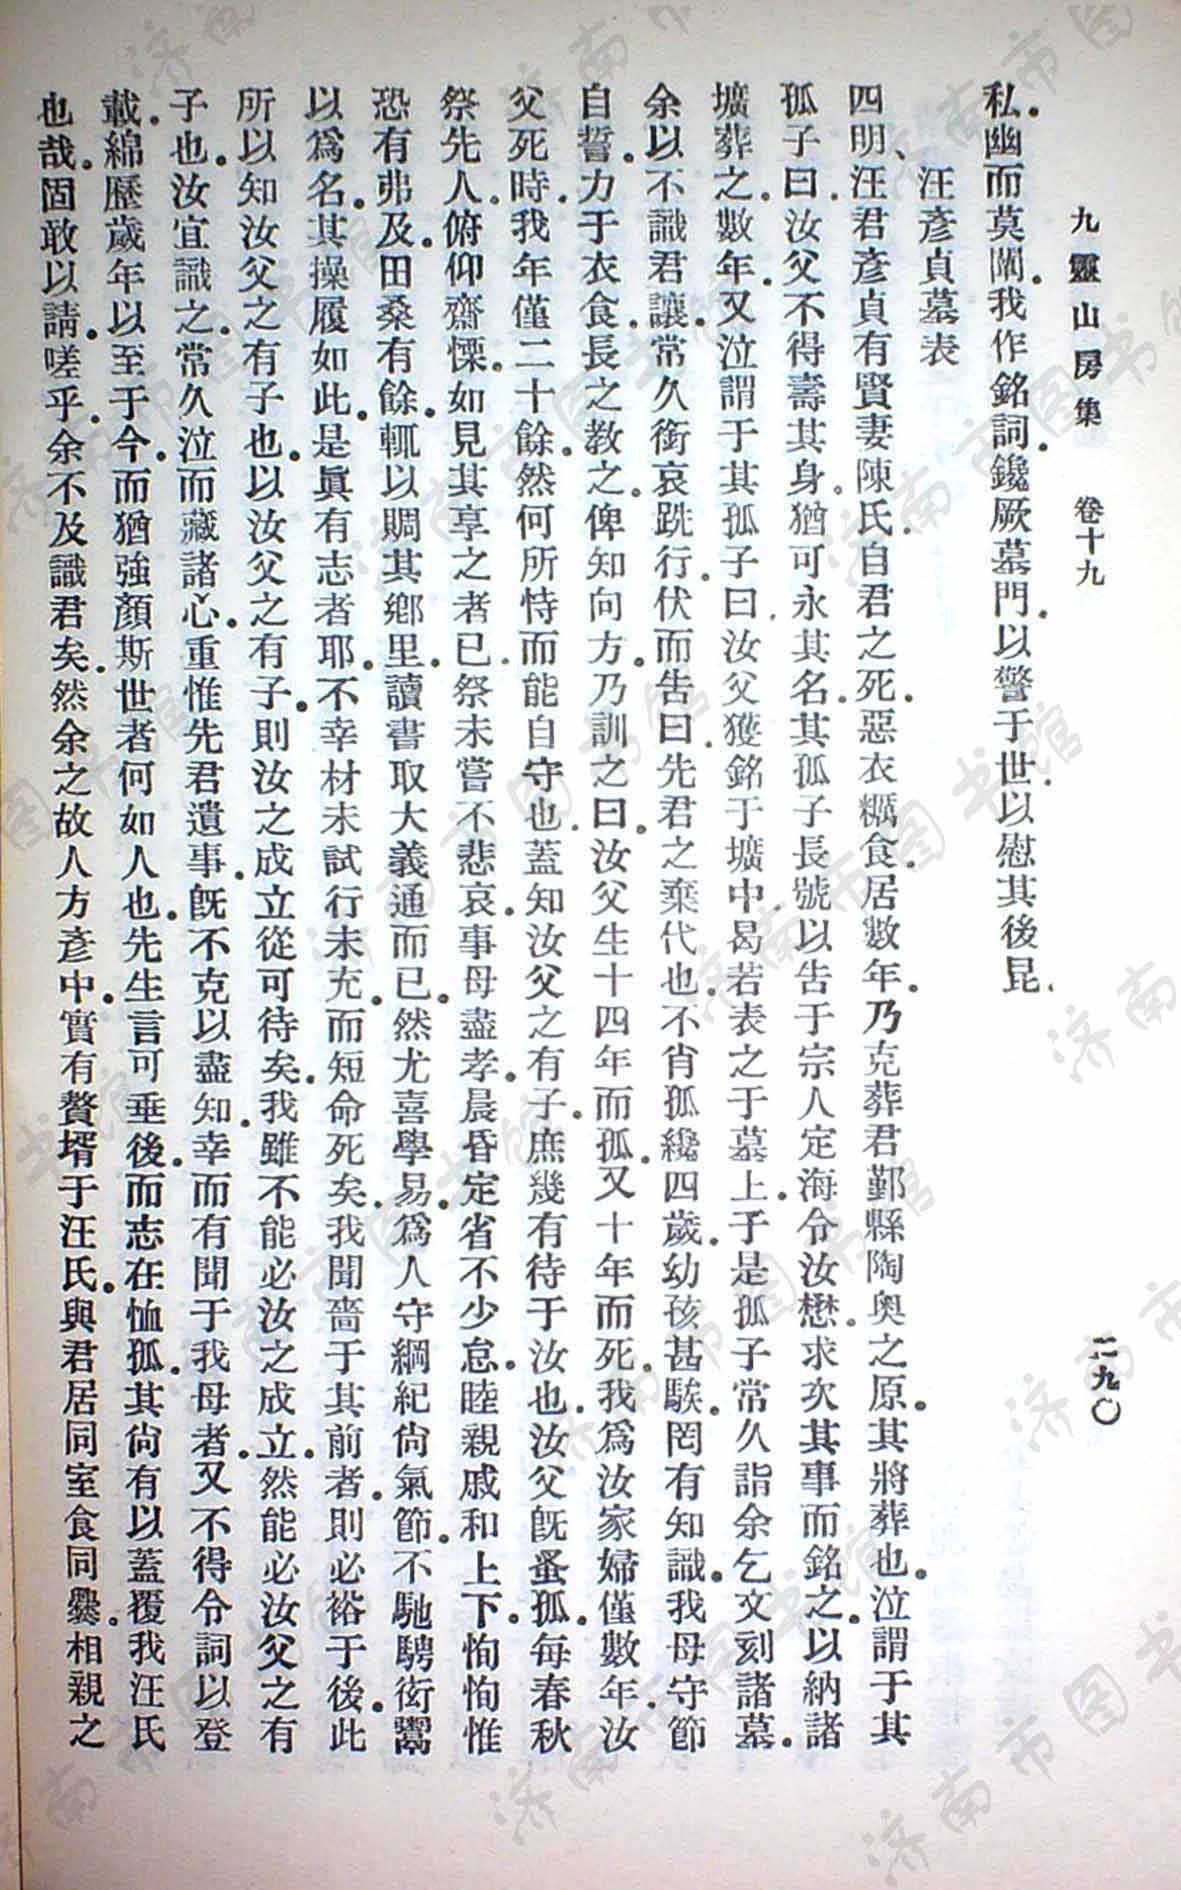 九靈山房集　卷十九　二九〇
私。幽而莫闡。我作銘詞。鑱厥墓門。以警于世。以慰其後昆。
汪彥貞墓表
四明、汪君彥貞有賢妻陳氏。自君之死。惡衣糲食。居數年。乃克葬君鄞縣陶奧之原。其將葬也。泣謂于其
孤子曰。汝父不得壽其身。猶可永其名。其孤子長號以告于宗人定海令汝懋。求次其事而銘之。以納諸
壙葬之。數年。又泣謂于其孤子曰。汝父獲銘于壙中。曷若表之于墓上。于是孤子常久詣余乞文刻諸墓。
余以不識君讓。常久銜哀跣行。伏而告曰。先君之棄代也。不肖孤纔四歲。幼孩甚騃。罔有知識。我母守節
自誓。力于衣食。長之教之。俾知向方。乃訓之曰。汝父生十四年而孤。又十年而死。我爲汝家婦僅數年。汝
父死時。我年僅二十餘。然何所恃而能自守也。蓋知汝父之有子。庶幾有待于汝也。汝父既蚤孤。每春秋
祭先人。俯仰齋慄。如見其享之者。已祭未嘗不悲哀。事母盡孝。晨昏定省不少怠。睦親戚。和上下。恂恂惟
恐有弗及。田桑有餘。輒以賙其鄉里。讀書取大義通而已。然尤喜學易。爲人守綱紀。尙氣節。不馳騁衒鬻
以爲名。其操履如此。是眞有志者耶。不幸材未試。行未充。而短命死矣。我聞嗇于其前者。則必裕于後。此
所以知汝父之有子也。以汝父之有子。則汝之成立從可待矣。我雖不能必汝之成立。然能必汝父之有
子也。汝宜識之。常久泣而藏諸心。重惟先君遺事。既不克以盡知。幸而有聞于我母者。又不得令詞以登
載。綿歷歲年。以至于今。而猶強顏斯世者何如人也。先生言可垂後。而志在恤孤。其尙有以蓋覆我汪氏
也哉。固敢以請。嗟乎。余不及識君矣。然余之故人方彥中。實有贅壻于汪氏。與君居同室。食同爨。相親之